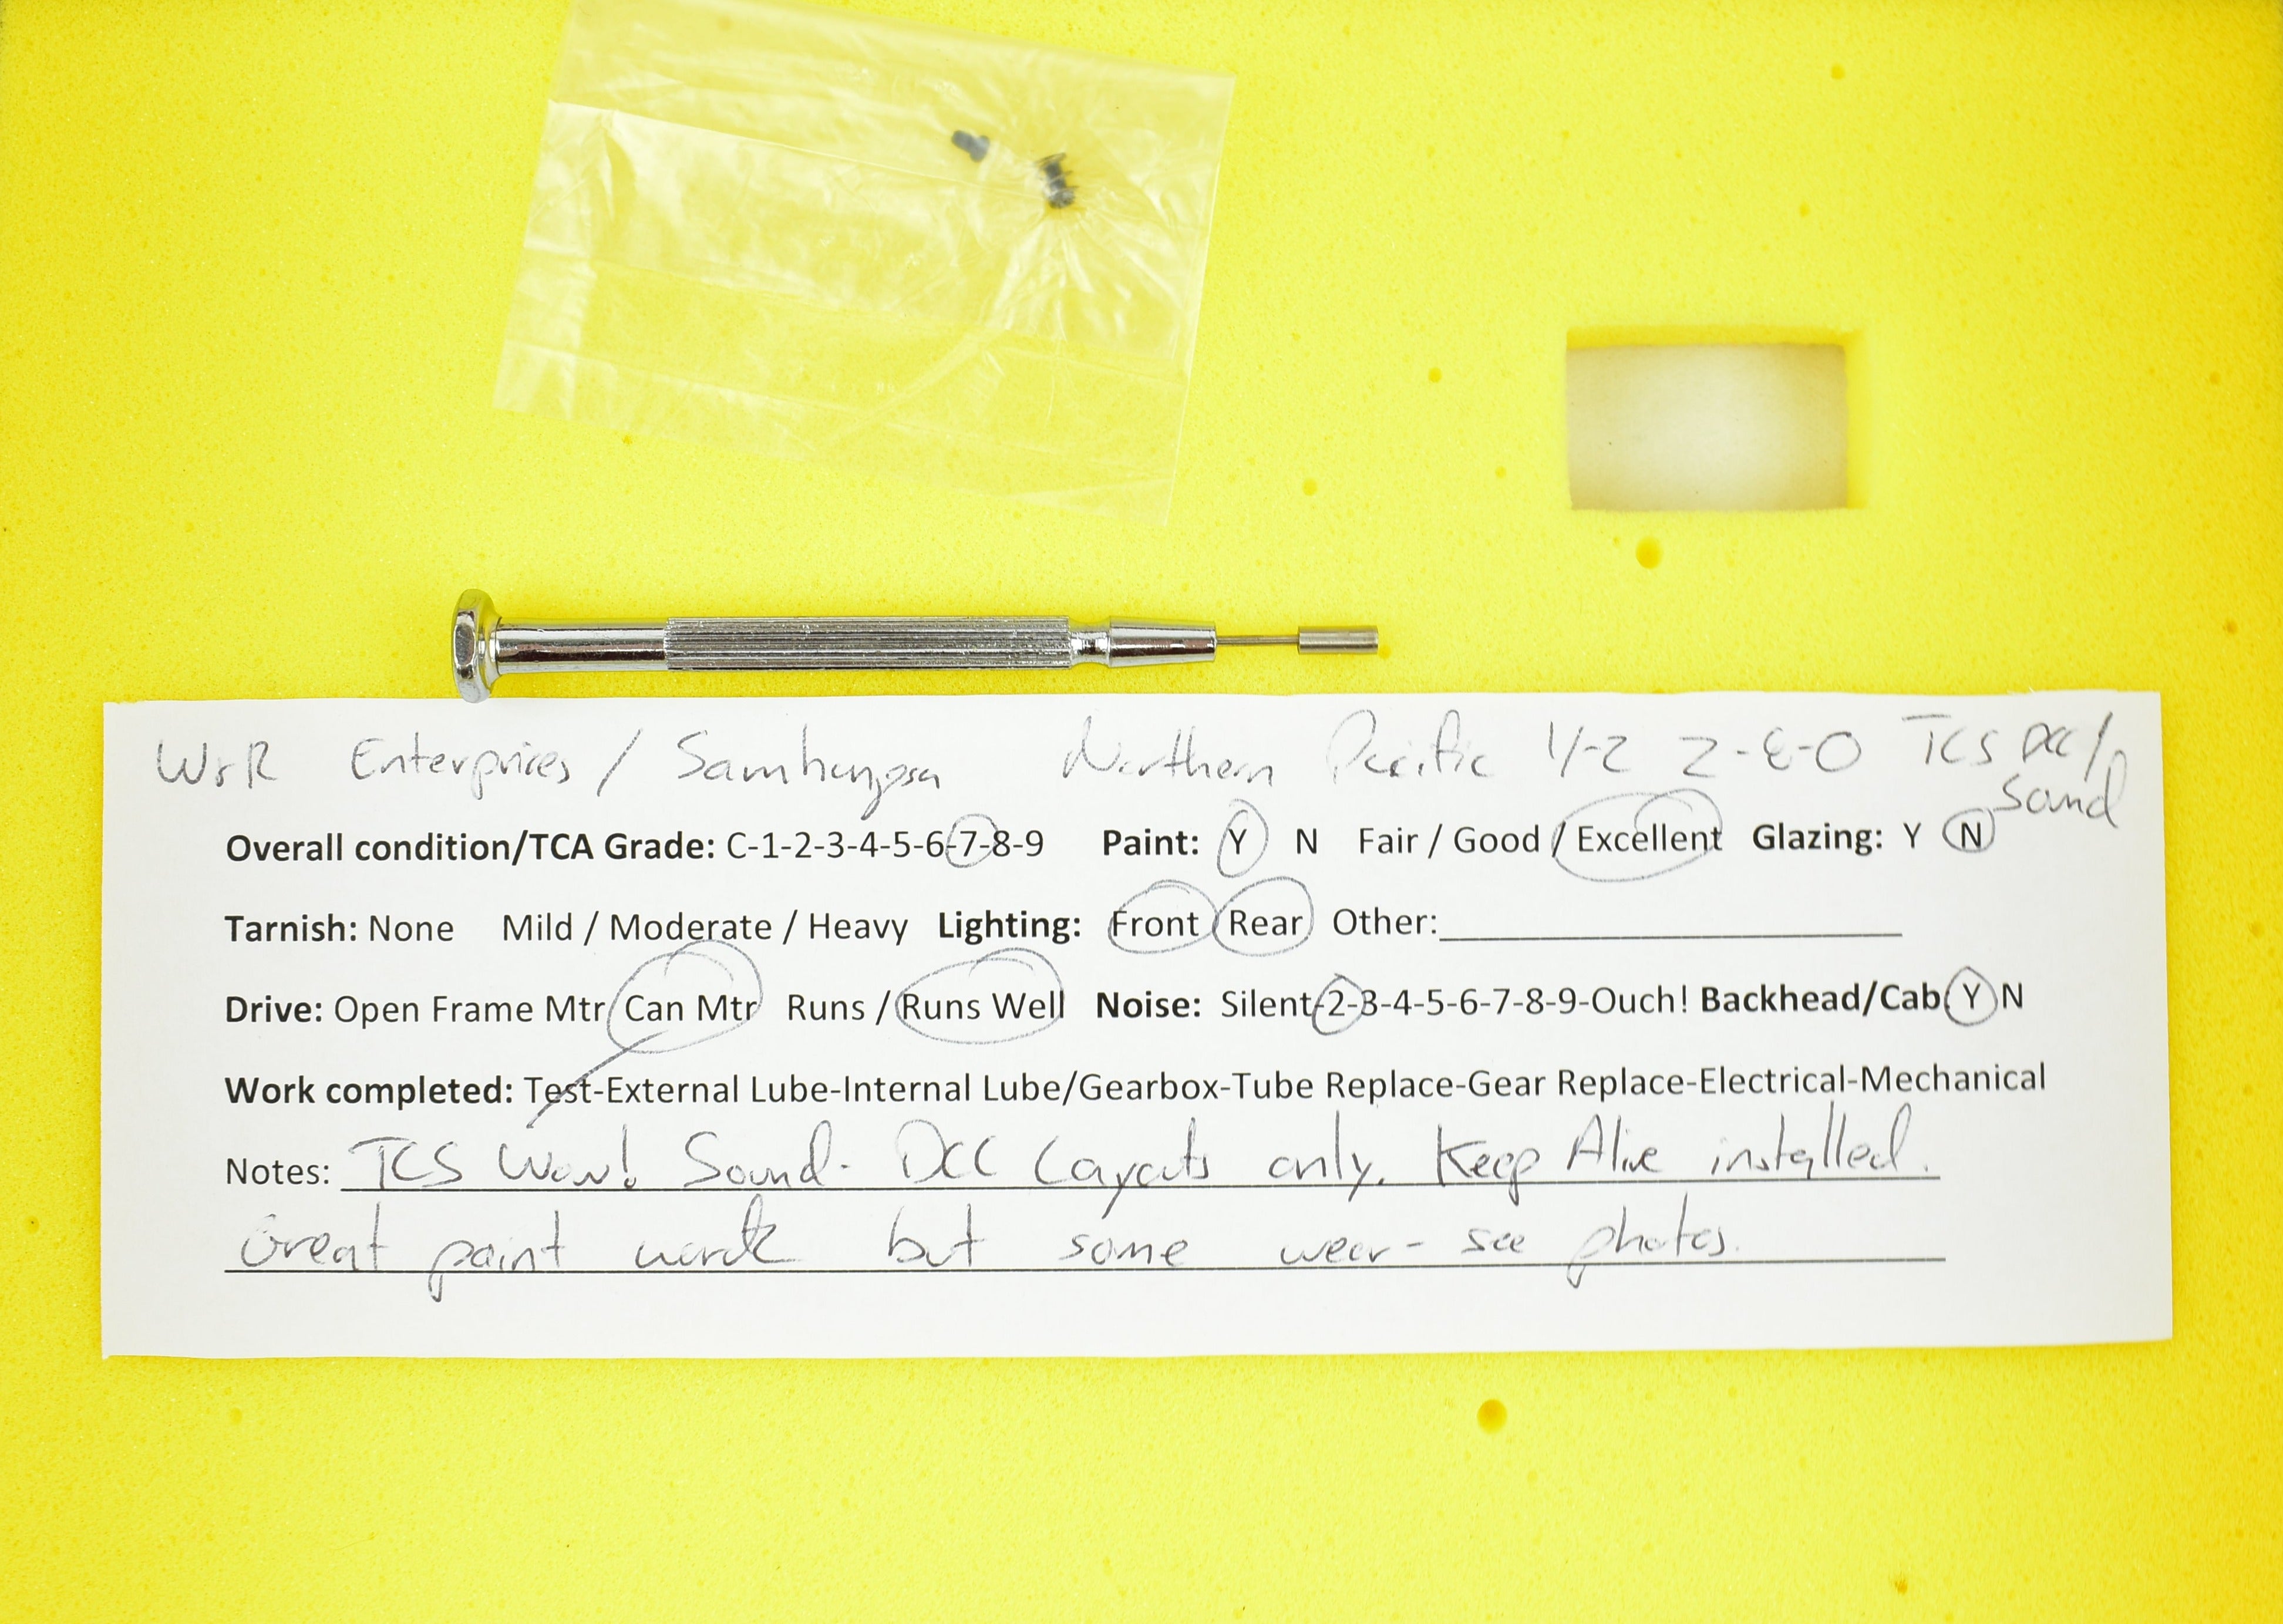 W&R Enterprices / Samhongsa Northern Pacific Y-2 2-8-0 TCS DCC/
Sound
Overall condition/TCA Grade: C-1-2-3-4-5-6-7-8-9 Paint: Y N Fair / Good / Excellent Glazing: Y N
Tarnish: None Mild / Moderate / Heavy Lighting: Front Rear Other:
Drive: Open Frame Mtr / Can Mtr Runs / Runs Well Noise: Silent-2-3-4-5-6-7-8-9-Ouch! Backhead/Cab: Y N
Work completed: Test-External Lube-Internal Lube/Gearbox-Tube Replace-Gear Replace-Electrical-Mechanical
Notes: TCS Wow! Sound. DCC Layouts only. Keep Alive installed.
Great paint work but some wear - see photos.